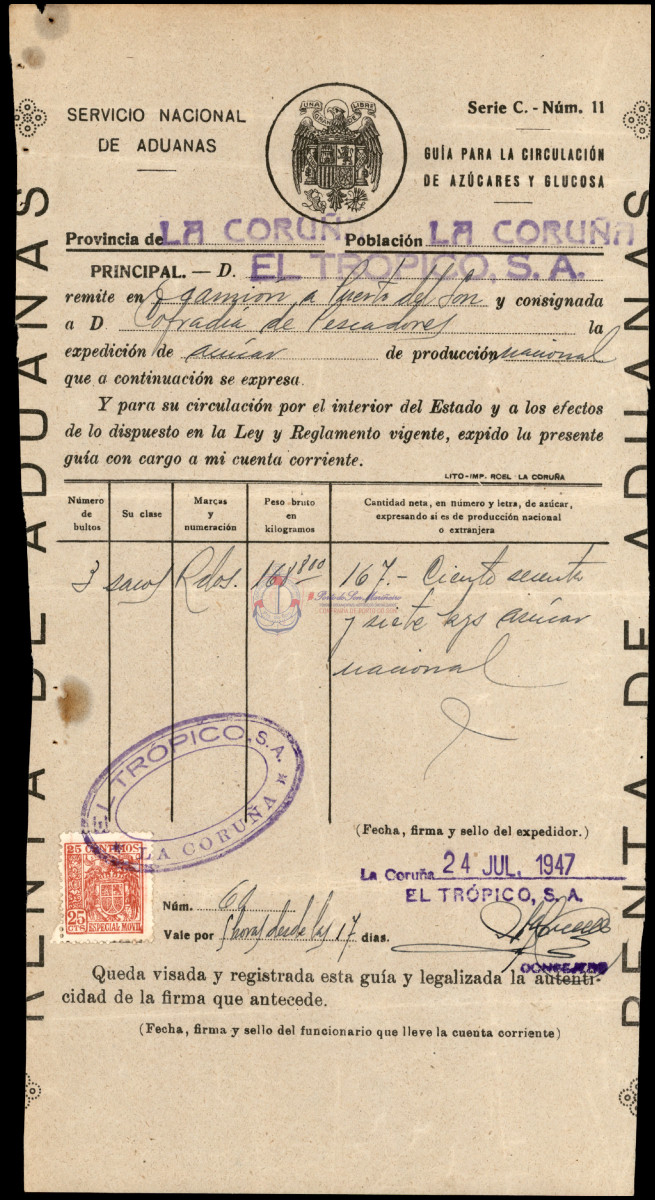 SERVICIO NACIONAL
DE ADUANAS
UNA
GRANDE
LIBRE
Serie C. - Núm. 11
GUÍA PARA LA CIRCULACIÓN
DE AZÚCARES Y GLUCOSA
Provincia de LA CORUÑ Población LA CORUÑA
PRINCIPAL. — D. EL TRÓPICO, S. A.
remite en camion a Puerto del Son y consignada
a D. Cofradia de Pescadores la
expedición de azúcar de producción nacional
que a continuación se expresa.
Y para su circulación por el interior del Estado y a los efectos
de lo dispuesto en la Ley y Reglamento vigente, expido la presente
guía con cargo a mi cuenta corriente.
LITO-IMP. ROEL LA CORUÑA
Número
de
bultos
Su clase
Marcas
y
numeración
Peso bruto
en
kilogramos
Cantidad neta, en número y letra, de azúcar,
expresando si es de producción nacional
o extranjera
3 sacos Rdos. 168'800 167.- Ciento sesenta
y siete kgs azúcar
nacional
Porto do Son Mariñeiro
EL TRÓPICO, S.A.
LA CORUÑA
25 CENTIMOS
25
CTS
ESPECIAL MOVIL
(Fecha, firma y sello del expedidor.)
La Coruña 24 JUL. 1947
EL TRÓPICO, S. A.
Núm. 69
Vale por 5 horas desde las 17 días.
CONSEJERO
Queda visada y registrada esta guía y legalizada la autenti-
cidad de la firma que antecede.
(Fecha, firma y sello del funcionario que lleve la cuenta corriente)
RENTA DE ADUANAS
RENTA DE ADUANAS